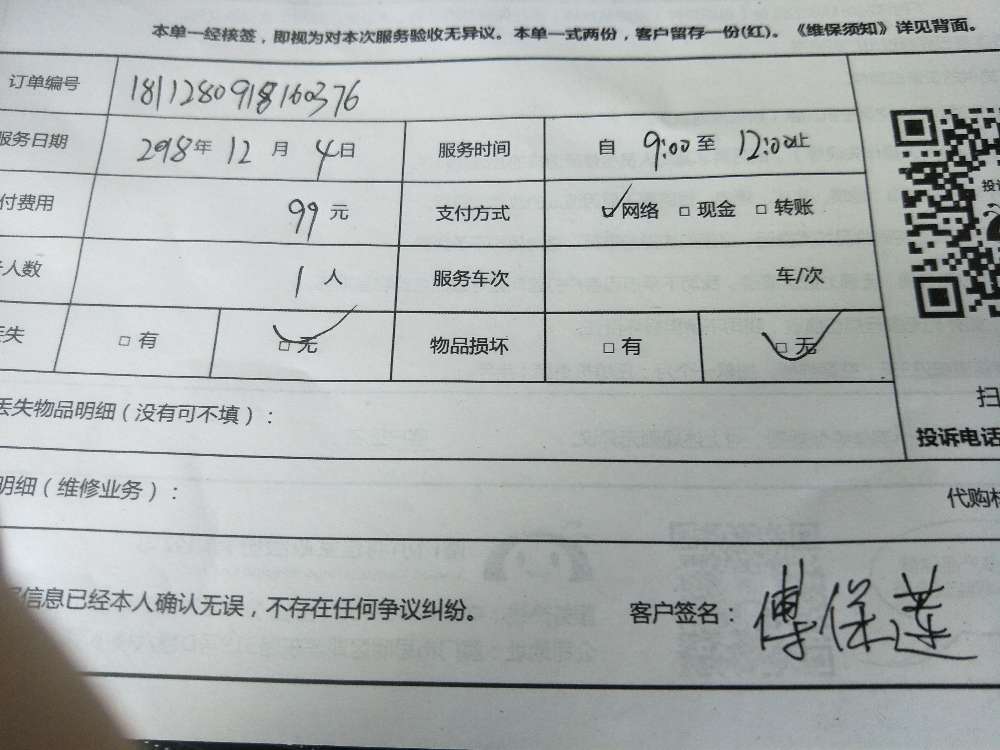 本单一经核签，即视为对本次服务验收无异议。本单一式两份，客户留存一份(红)。《维保须知》详见背面。
订单编号 1811280918160376
服务日期 2018年 12 月 4日 服务时间 自 9:00 至 12:00止
付费用 99 元 支付方式 ☑网络 □ 现金 □ 转账
人数 1 人 服务车次 车/次
丢失 □ 有 ☑ 无 物品损坏 □ 有 ☑ 无
丢失物品明细（没有可不填）：
扫
投诉电话
明细（维修业务）：
代购材
信息已经本人确认无误，不存在任何争议纠纷。 客户签名： 傅保莲